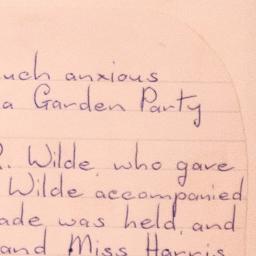 uch anxious
a Garden Party
R. Wilde, who gave
Wilde accompanied
ade was held, and
and Miss Harris